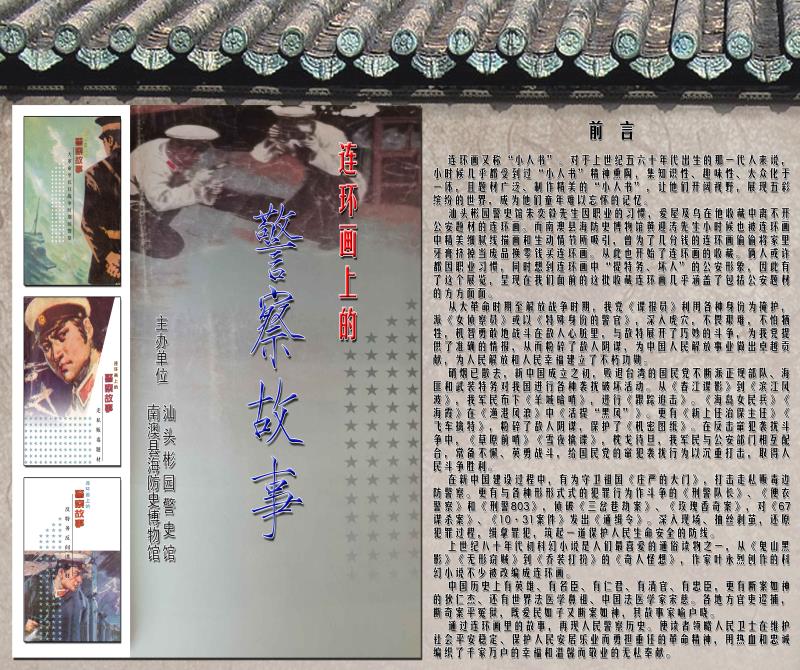 连环画上的
警察故事
主办单位
汕头彬园警史馆
南澳县海防史博物馆
连环画上的
警察故事
连环画上的
警察故事
走私贩毒题材
连环画上的
警察故事
前言
连环画又称“小人书”，对于上世纪五六十年代出生的那一代人来说，
小时候几乎都受到过“小人书”精神熏陶，集知识性、趣味性、大众化于
一体，且题材广泛、制作精美的“小人书”，让他们开阔视野，展现五彩
缤纷的世界，成为他们童年难以忘怀的记忆。
汕头彬园警史馆朱奕毅先生因职业的习惯，爱屋及乌在他收藏中离不开
公安题材的连环画。而南澳县海防史博物馆黄迎涛先生小时候也被连环画
中精美细腻线描画和生动情节所吸引，曾为了几分钱的连环画偷偷将家里
牙膏挤掉当废品换零钱买连环画。从此也开始了连环画的收藏。俩人或许
都因职业习惯，同时想到连环画中“捉特务、坏人”的公安形象，因此有
了这个展览，呈现在我们面前的这批收藏连环画几乎涵盖了包括公安题材
的方方面面。
从大革命时期至解放战争时期，我党《谍报员》利用各种身份为掩护，
派《女侦察员》或以《特殊身份的警官》，深入虎穴，不畏艰难，不怕牺
牲，机智勇敢地战斗在敌人心脏里，与敌特展开了巧妙的斗争，为我党提
供了准确的情报，从而粉碎了敌人阴谋，为中国人民解放事业做出卓越贡
献，为人民解放和人民幸福建立了不朽功勋。
硝烟已散去，新中国成立之初，败退台湾的国民党不断派正规部队、海
匪和武装特务对我国进行各种袭扰破坏活动。从《春江谍影》到《滨江风
波》，我军民布下《羊城暗哨》，进行《跟踪追击》。《海岛女民兵》《
海霞》在《渔港风浪》中《活捉“黑凤”》。更有《新上任治保主任》《
飞车擒特》，粉碎了敌人阴谋，保护了《机密图纸》。在反击窜犯袭扰斗
争中，《草原前哨》《雪夜擒谍》，枕戈待旦，我军民与公安部门相互配
合，常备不懈、英勇战斗，给国民党的窜犯袭扰行为以沉重打击，取得人
民斗争胜利。
在新中国建设过程中，有为守卫祖国《庄严的大门》，打击走私贩毒边
防警察。更有与各种形形式式的犯罪行为作斗争的《刑警队长》、《便衣
警察》和《刑警803》，侦破《三岔巷劫案》、《玫瑰香奇案》，对《67
谋杀案》、《10·31案件》发出《通缉令》。深入现场、抽丝剥茧，还原
犯罪过程，缉拿罪犯，筑起一道保护人民生命安全的防线。
上世纪八十年代初科幻小说是人们最喜爱的通俗读物之一，从《鬼山黑
影》《无形窃贼》到《乔装打扮》的《奇人怪想》，作家叶永烈创作的科
幻小说不少被改编成连环画。
中国历史上有英雄、有名臣、有仁君、有清官、有忠臣，更有断案如神
的狄仁杰、还有世界法医学鼻祖、中国法医学家宋慈。各地方官吏巡捕，
断奇案平冤狱，既爱民如子又断案如神，其故事家喻户晓。
通过连环画里的故事，再现人民警察历史。使读者领略人民卫士在维护
社会平安稳定、保护人民安居乐业而勇担重任的革命精神，用热血和忠诚
编织了千家万户的幸福和温馨而敬业的无私奉献。